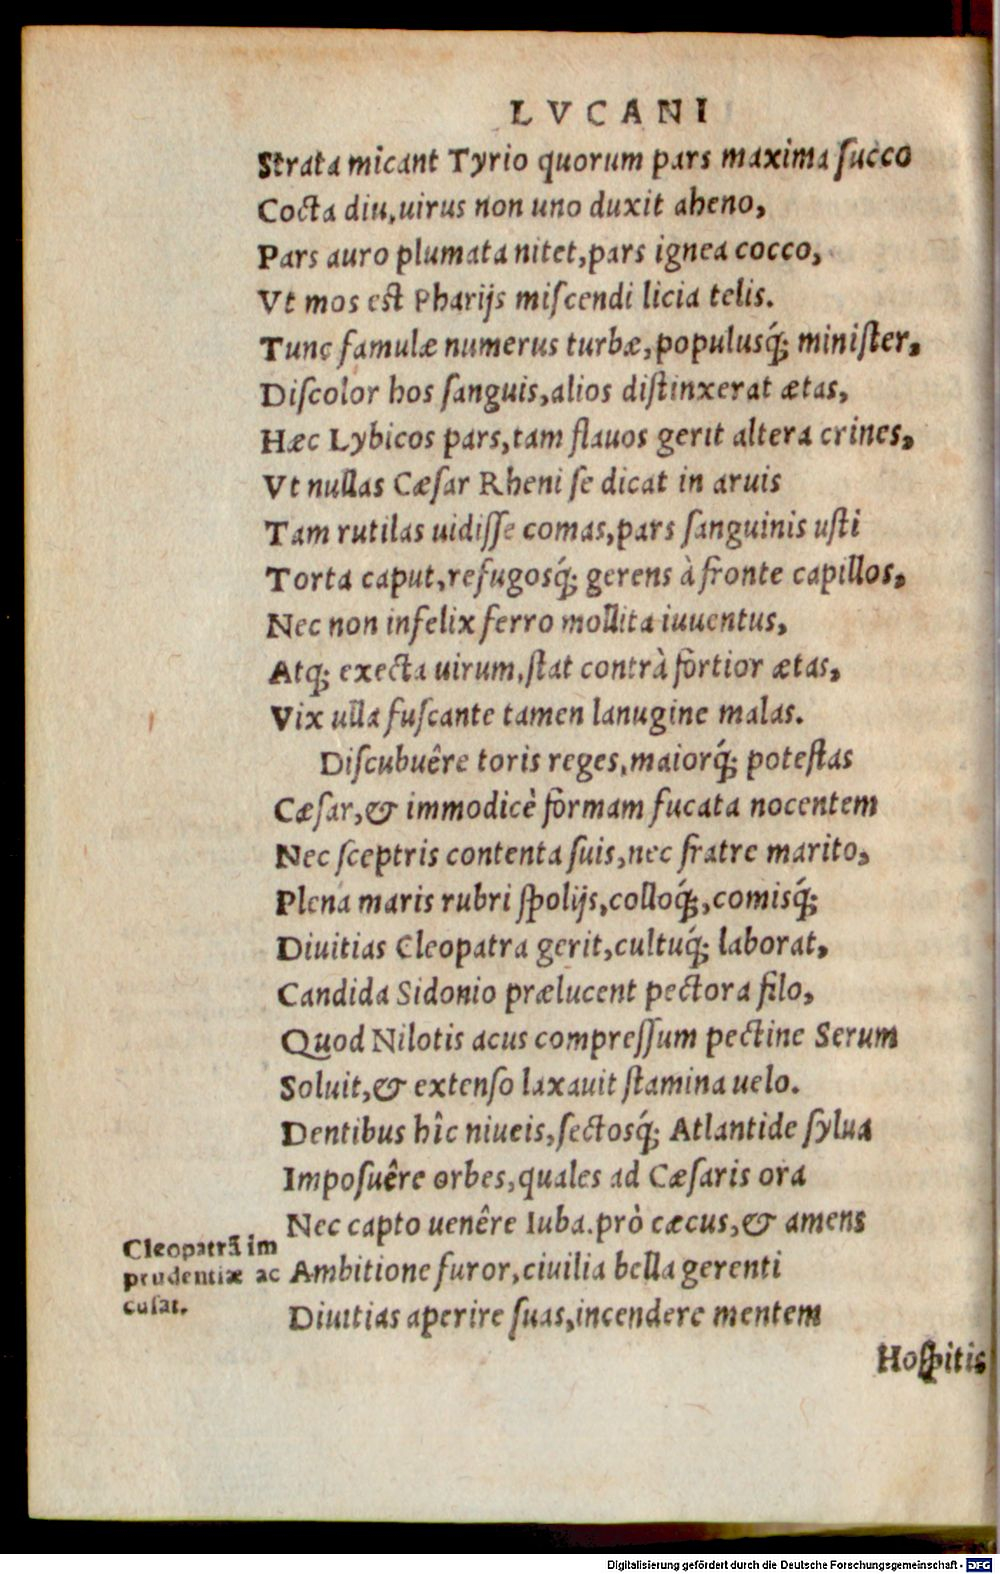 LVCANI
Strata micant Tyrio quorum pars maxima ſucco
Cocta diu, uirus non uno duxit aheno,
Pars auro plumata nitet, pars ignea cocco,
Vt mos est Pharijs miſcendi licia telis.
Tunc famulæ numerus turbæ, populusq́; miniſter,
Diſcolor hos ſanguis, alios diſtinxerat ætas,
Hæc Lybicos pars, tam flauos gerit altera crines,
Vt nullas Cæſar Rheni ſe dicat in aruis
Tam rutilas uidiſſe comas, pars ſanguinis uſti
Torta caput, refugosq́; gerens à fronte capillos,
Nec non infelix ferro mollita iuuentus,
Atq; execta uirum, ſtat contrà fortior ætas,
Vix ulla fuſcante tamen lanugine malas.
Diſcubuêre toris reges, maiorq́; poteſtas
Cæſar, & immodicè formam fucata nocentem
Nec ſceptris contenta ſuis, nec fratre marito,
Plena maris rubri ſpolijs, colloq́;, comisq́;
Diuitias Cleopatra gerit, cultuq́; laborat,
Candida Sidonio prælucent pectora filo,
Quod Nilotis acus compreſſum pectine Serum
Soluit, & extenſo laxauit ſtamina uelo.
Dentibus hîc niueis, ſectosq́; Atlantide ſylua
Impoſuêre orbes, quales ad Cæſaris ora
Nec capto uenêre Iuba. prò cæcus, & amens
Cleopatrã im
prudentiæ ac
cuſat.
Ambitione furor, ciuilia bella gerenti
Diuitias aperire ſuas, incendere mentem
Hoſpitis
Digitalisierung gefördert durch die Deutsche Forschungsgemeinschaft - DFG